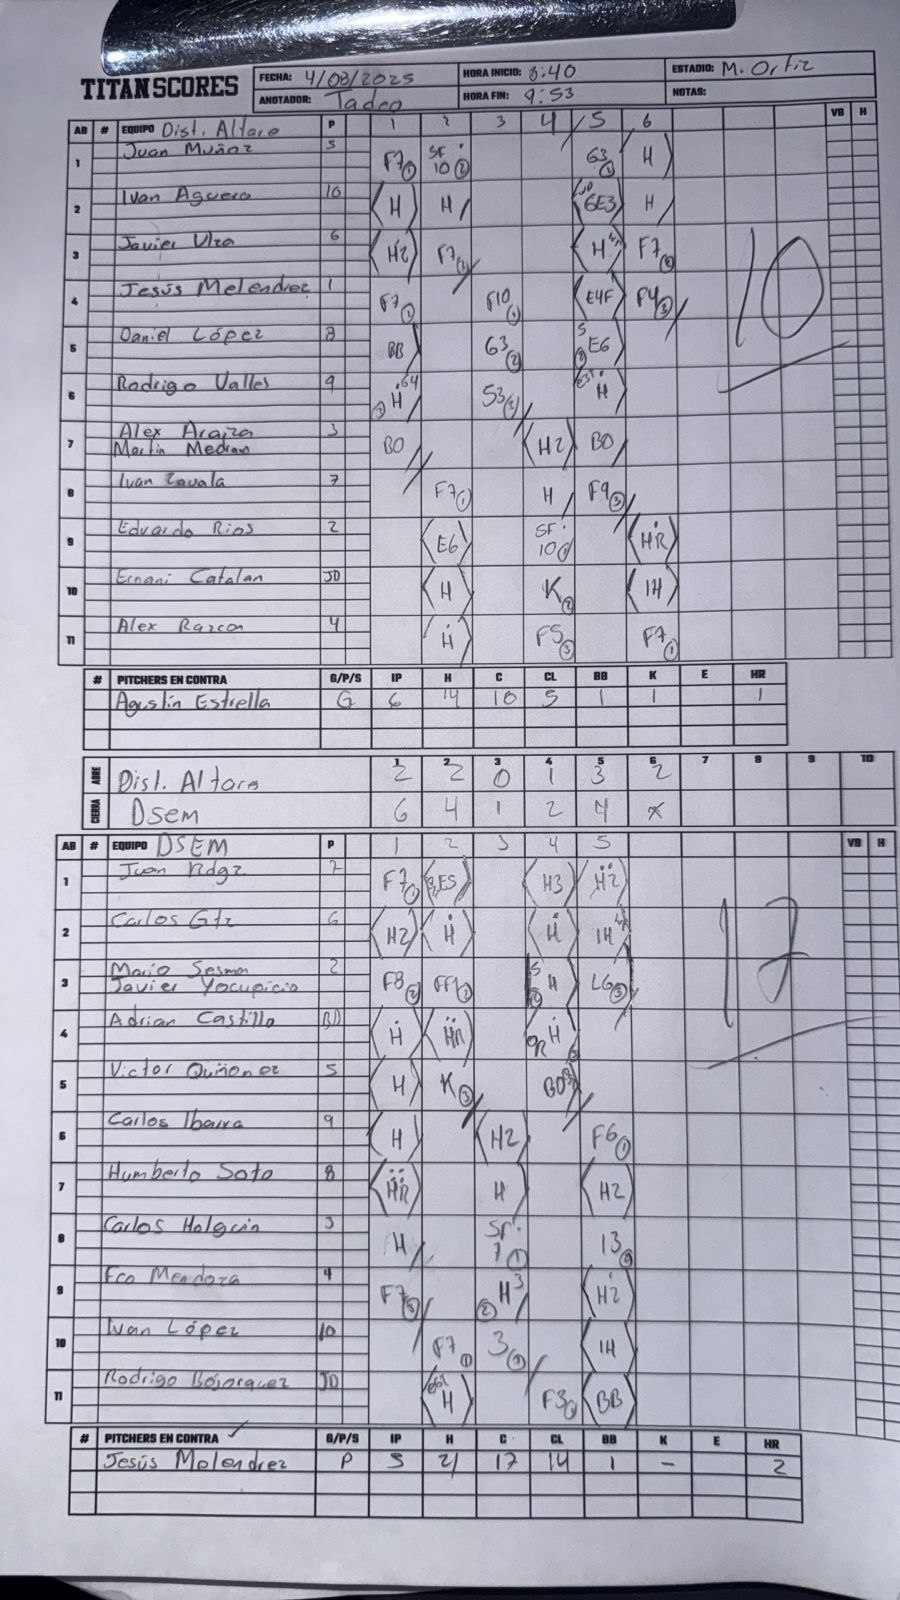 TITAN SCORES
FECHA: 4/08/2025 HORA INICIO: 8:40 ESTADIO: M. Ortiz
ANOTADOR: Tadeo HORA FIN: 9:53 NOTAS:
AB # EQUIPO Dist. Altaro P 1 2 3 4 5 6 VB H
1 Juan Muñoz 5 F7 1 SF 10 2 63 1 H
2 Ivan Aguero 10 H H 6E3 H
3 Javier Ulza 6 H2 F7 3 H F7 2
4 Jesús Melendrez 1 F7 2 F10 1 E4F F4 3
5 Daniel López 8 BB 63 2 5 E6 2
6 Rodrigo Valles 9 H 64 3 53 3 H
7 Alex Araiza 3 BO H2 BO
Martin Medran
8 Ivan Zavala 7 F7 1 H F9 3
9 Eduardo Rios 2 E6 SF 10 1 HR
10 Ernani Catalan JD H K 2 1H
11 Alex Rascon 4 H F5 3 F7 1
10
# PITCHERS EN CONTRA G/P/S IP H C CL BB K E HR
Agustin Estrella G 6 14 10 5 1 1 1
1 2 3 4 5 6 7 8 9 10
ABRE Dist. Altaro 2 2 0 1 3 2
CIERRA Dsem 6 4 1 2 4 x
AB # EQUIPO DSEM P 1 2 3 4 5 VB H
1 Juan Rdgz 7 F7 1 E5 H3 H2
2 Carlos Gtz 6 H2 H H 1H
3 Mario Sesma 2 F8 2 FF1 2 5 H 2 L6 3
Javier Yocupicio
4 Adrian Castillo H HR H
5 Victor Quiñonez 5 H K 3 BO
6 Carlos Ibarra 9 H H2 F6 1
7 Humberto Soto 8 HR H H2
8 Carlos Holguin 3 H SF 7 1 13 2
9 Fco Mendoza 4 F7 3 H 3 2 H2
10 Ivan López 10 F7 1 3 3 1H
11 Rodrigo Bojorquez JD H F3 1 BB
17
# PITCHERS EN CONTRA G/P/S IP H C CL BB K E HR
Jesús Melendrez P 5 21 17 14 1 - 2